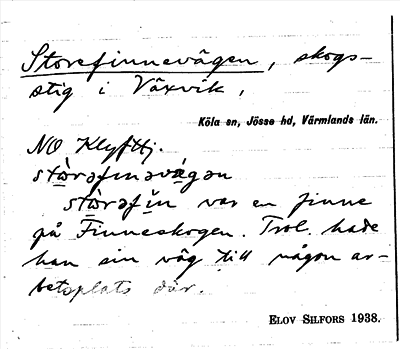 Storefinnevägen, skogs-
stig i Växvik,
Köla sn, Jösse hd, Värmlands län.
NO Klyfttj.
stòrəfinəvä́gən
stòrəfĭn var en finne
på Finneskogen. Trol. hade
han sin väg till någon ar-
betsplats där.
ELOV SILFORS 1938.